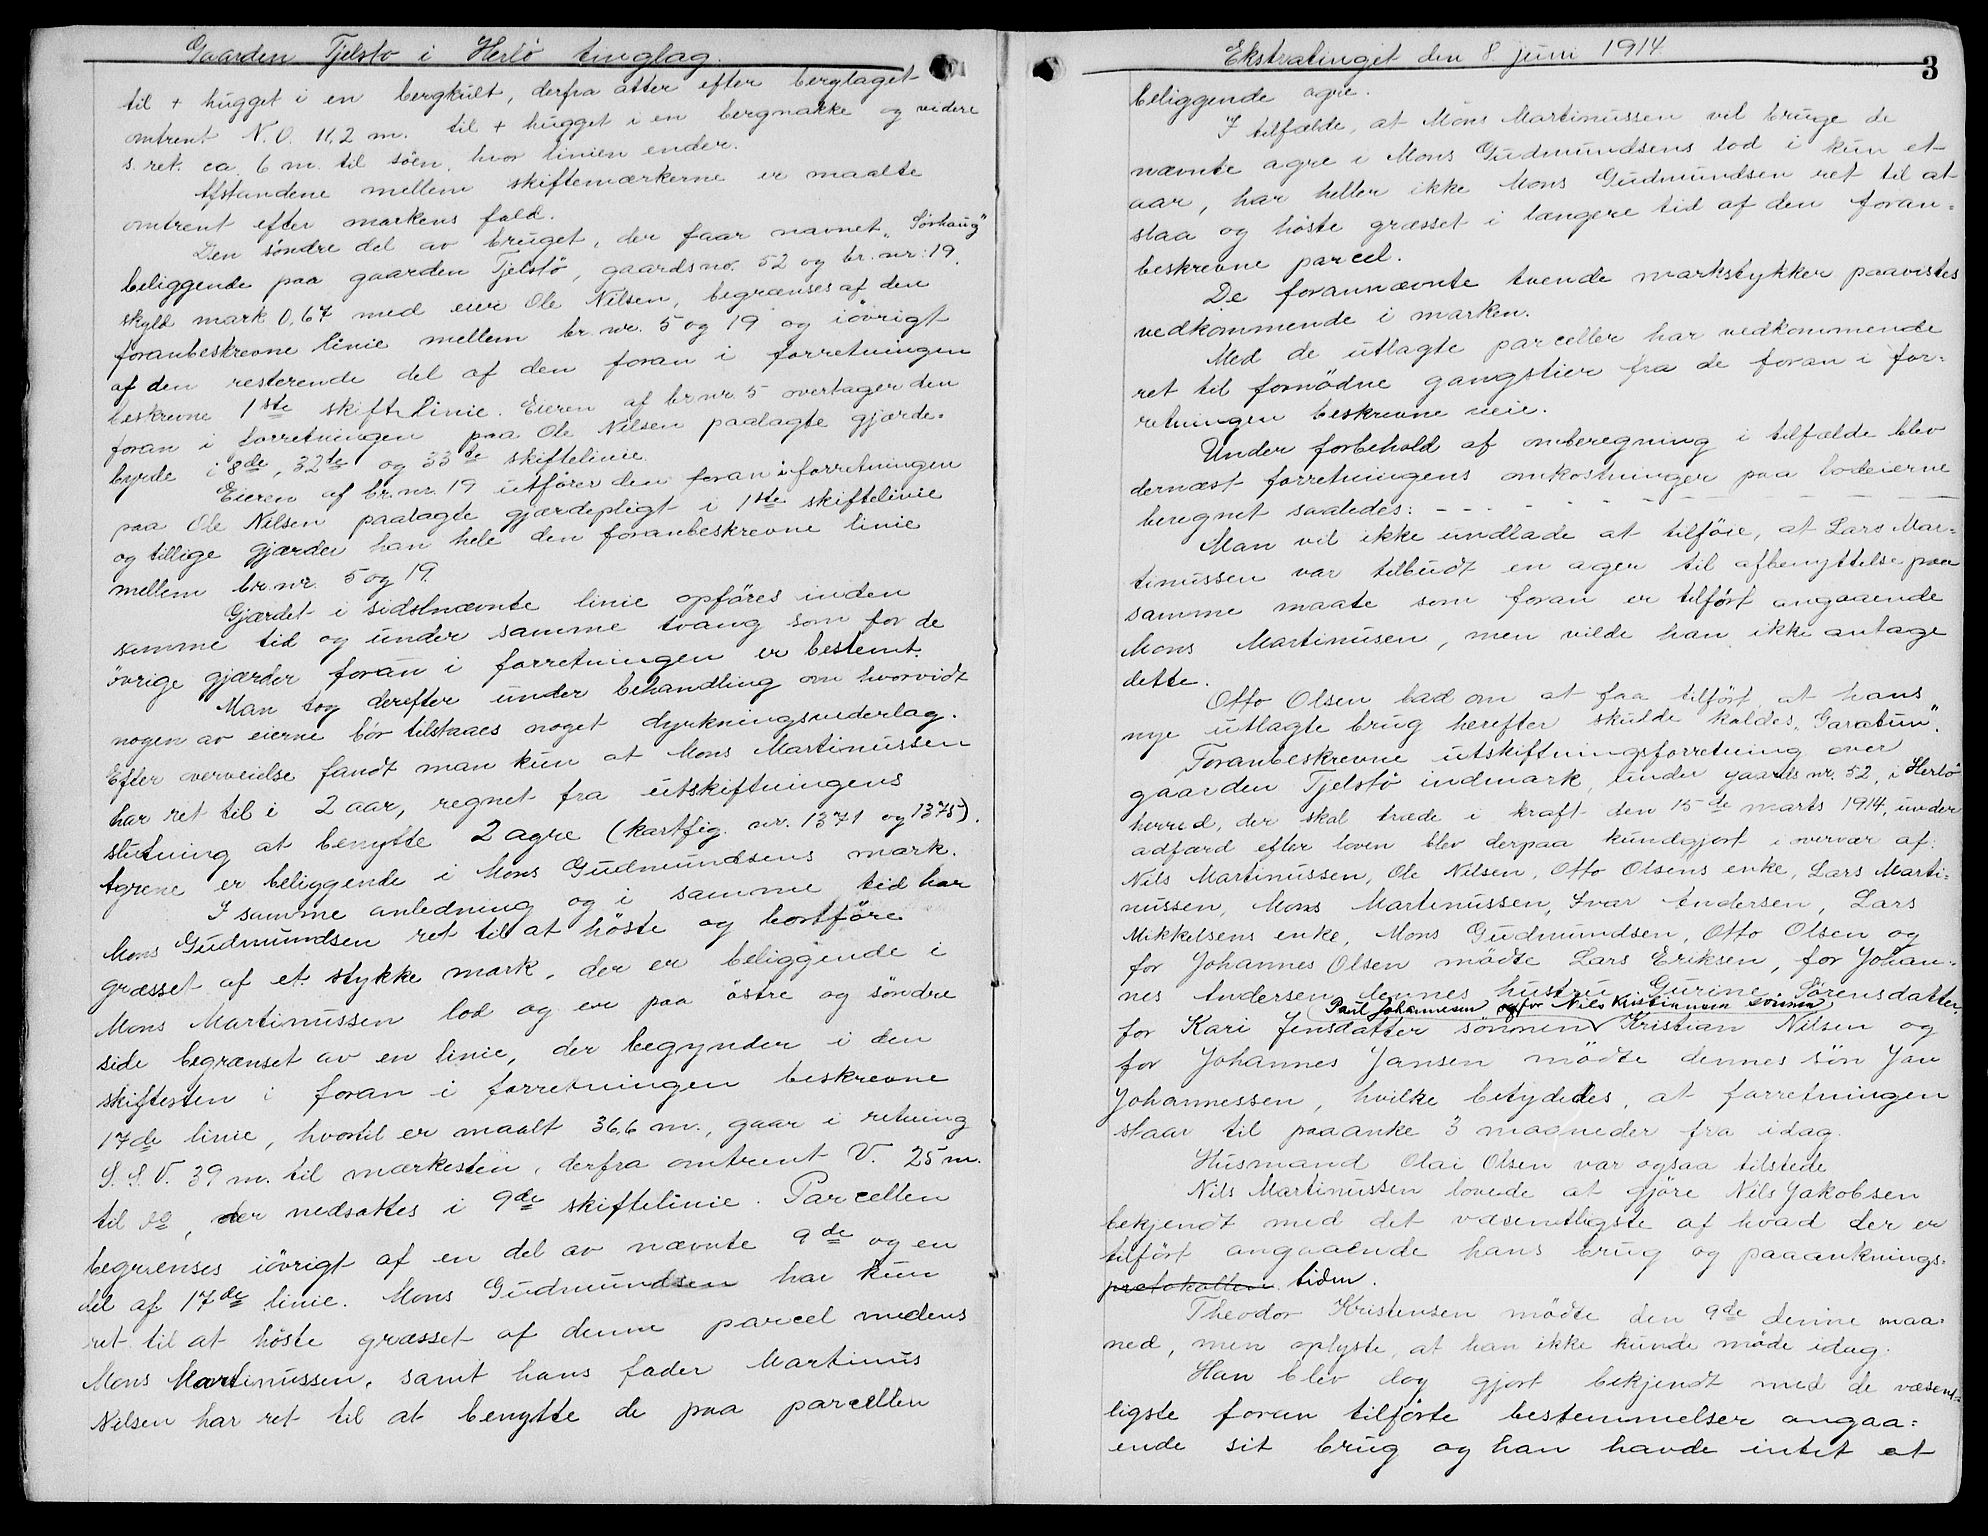 Gaarden Tjelstø i Herlö tinglag.
til + hugget i en bergkult, derfra atter efter berglaget
omtrent N.O. 11,2 m. til + hugget i en bergnakke og videre
s. ret. ca. 6 m. til söen, hvor linien ender.
Afstandene mellem skiftemærkerne er maalte
omtrent efter markens fald.
Den söndre del av bruget, der faar navnet „Sörhaug"
beliggende paa gaarden Tjelstö, gaardsno. 52 og br. nr. 19.
skyld mark 0,67 med eier Ole Nilsen, begrænses af den
foranbeskrevne linie mellem br. nr. 5 og 19 og iövrigt
af den resterende del af den foran i forretningen
beskrevne 1ste skiftelinie. Eieren af br. nr. 5 overtager den
foran i forretningen paa Ole Nilsen paalagte gjærde-
byrde i 8de, 32te og 33te skiftelinie.
Eieren af br. nr. 19 utförer den foran i forretningen
paa Ole Nilsen paalagte gjærdepligt i 1ste skiftelinie
og tillige gjærder han hele den foranbeskrevne linie
mellem br. nr. 5 og 19.
Gjærdet i sidstnævnte linie opföres inden
samme tid og under samme tvang som for de
övrige gjærder foran i forretningen er bestemt.
Man tog derefter under behandling om hvorvidt
nogen av eierne bör tilstaaes noget dyrkningsvederlag.
Efter overveielse fandt man kun at Mons Martinussen
har ret til i 2 aar, regnet fra utskiftningens
slutning at benytte 2 agre (kartfig. nr. 1371 og 1375).
Agrene er beliggende i Mons Gudmundsens mark.
I samme anledning og i samme tid har
Mons Gudmundsen ret til at höste og bortföre
græsset af et stykke mark, der er beliggende i
Mons Martinussen lod og er paa östre og söndre
side begrænset av en linie, der begynder i den
skiftesten i foran i forretningen beskrevne
17de linie, hvortil er maalt 36,6 m., gaar i retning
S.S.V. 39 m. til mærkesten, derfra omtrent V. 25 m.
til do, der nedsattes i 9de skiftelinie. Parcellen
begrænses iövrigt af en del av nævnte 9de og en
del af 17de linie. Mons Gudmundsen har kun
ret til at höste græsset af denne parcel medens
Mons Martinussen, samt hans fader Martinus
Nilsen har ret til at benytte de paa parcellen
Ekstratinget den 8 juni 1914
3
beliggende agre.
I tilfælde, at Mons Martinussen vil bruge de
nævnte agre i Mons Gudmundsens lod i kun et
aar, har heller ikke Mons Gudmundsen ret til at
slaa og höste græsset i længere tid af den foran-
beskrevne parcel.
De forannævnte tvende markstykker paavistes
vedkommende i marken.
Med de utlagte parceller har vedkommende
ret til fornödne gangstier fra de foran i for-
retningen beskrevne veie.
Under forbehold af omberegning i tilfælde blev
dernæst forretningens omkostninger paa lodeierne
beregnet saaledes: - - - - - - - - -
Man vil ikke undlade at tilföie, at Lars Mar-
tinussen var tilbudt en ager til afbenyttelse paa
samme maate som foran er tilfört angaaende
Mons Martinusen, men vilde han ikke antage
dette.
Otto Olsen bad om at faa tilfört, at hans
nye utlagte brug herefter skulde kaldes „Garatun".
Foranbeskrevne utskiftningsforretning over
gaarden Tjelstö indmark, under gaards nr. 52, i Herlö
herred, der skal træde i kraft den 15de marts 1914, under
adfærd efter loven blev derpaa kundgjort i overvær af:
Nils Martinussen, Ole Nilsen, Otto Olsens enke, Lars Marti-
nussen, Mons Martinussen, Ivar Andersen, Lars
Mikkelsens enke, Mons Gudmundsen, Otto Olsen og
for Johannes Olsen mödte Lars Eriksen, for Johan-
nes Andersen dennes hustru Gurine Sörensdatter,
Paul Johannesen og for Nils Kristiansen sönnen
for Kari Jensdatter sönnen Kristian Nilsen og
for Johannes Jansen mödte dennes sön Jan
Johannessen, hvilke betydedes, at forretningen
staar til paaanke 3 maaneder fra idag.
Husmand Olai Olsen var ogsaa tilstede
Nils Martinussen lovede at gjöre Nils Jakobsen
bekjendt med det væsentligste af hvad der er
tilfört angaaende hans brug og paaanknings-
protokollen tiden.
Theodor Kristensen mödte den 9de denne maa-
ned, men oplyste, at han ikke kunde möde idag.
Han blev dog gjort bekjendt med de væsent-
ligste foran tilförte bestemmelser angaa-
ende sit brug og han havde intet at